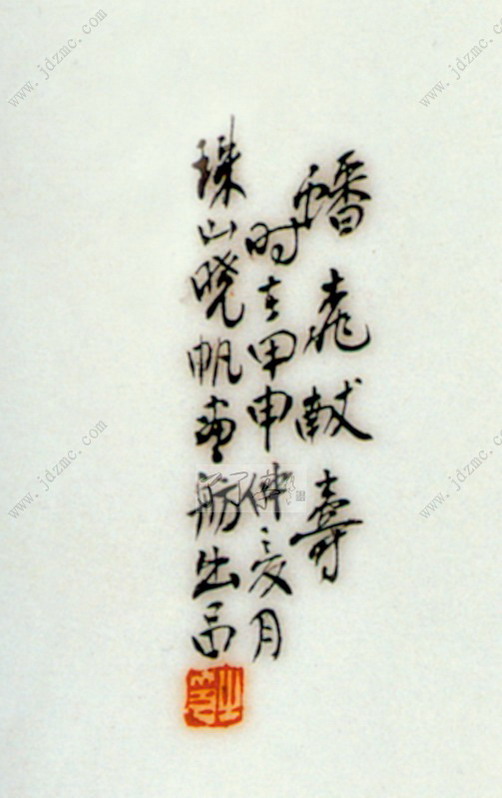 蟠桃献寿
时在甲申仲夏月
珠山晓帆画舫出品
www.jdzmc.com
www.jdzmc.com
www.jdzmc.com
www.jdzmc.com